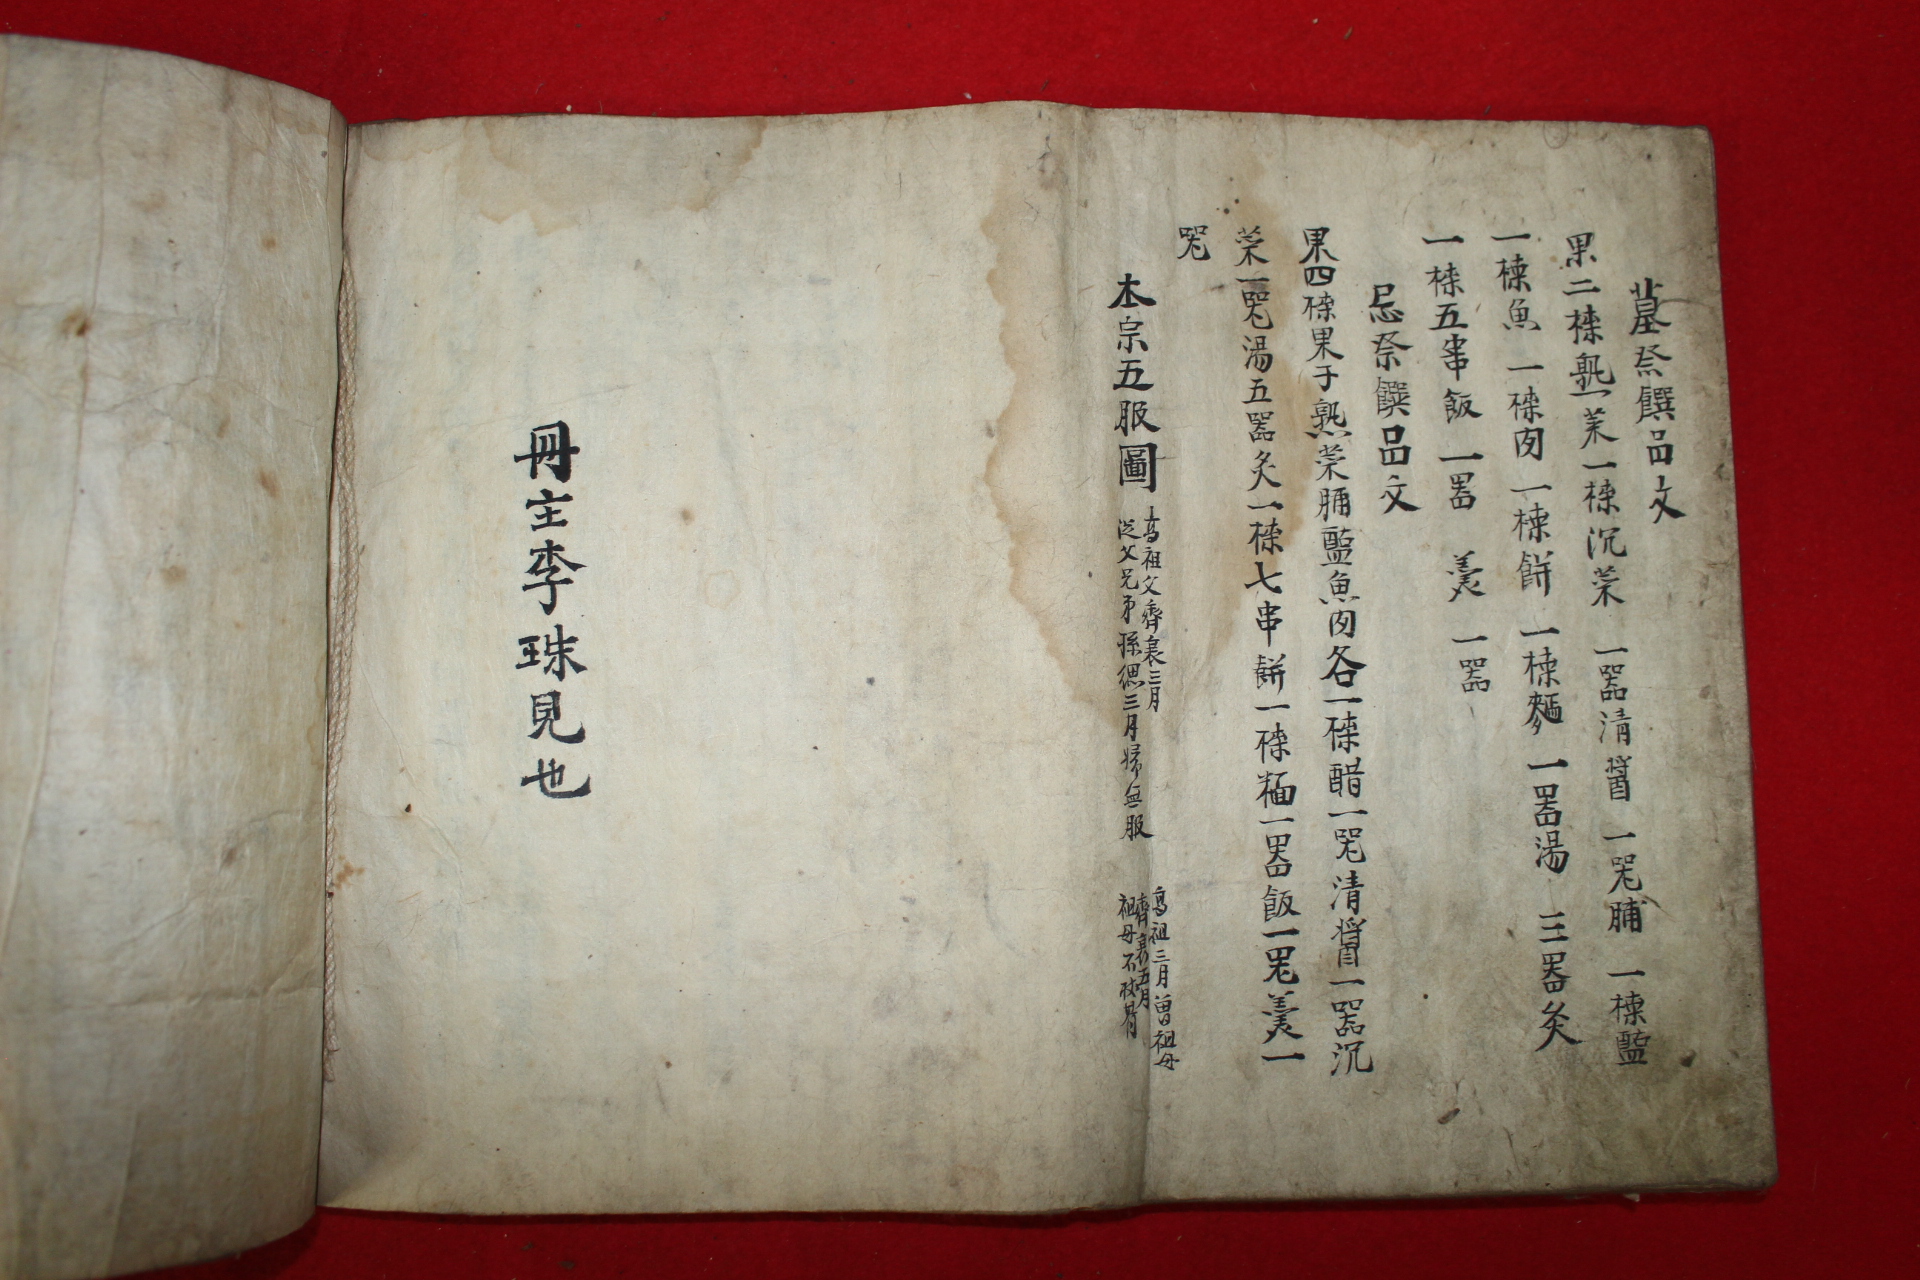 墓祭饌品文
果二楪熟菜一楪沉菜 一器清醬 一器脯 一楪醢
一楪魚 一楪肉 一楪餠 一楪麵 一器湯 三器炙
一楪五串飯 一器 羹 一器
忌祭饌品文
果四楪果子熟菜脯醢魚肉各一楪醋一器清醬一器沉
菜一器湯五器炙一楪七串餠一楪麵一器飯一器羹一
器
本宗五服圖
高祖父齊衰三月
從父兄弟孫緦三月婦無服
高祖三月曾祖母
齊衰五月
祖母不杖朞
冊主李珠見也